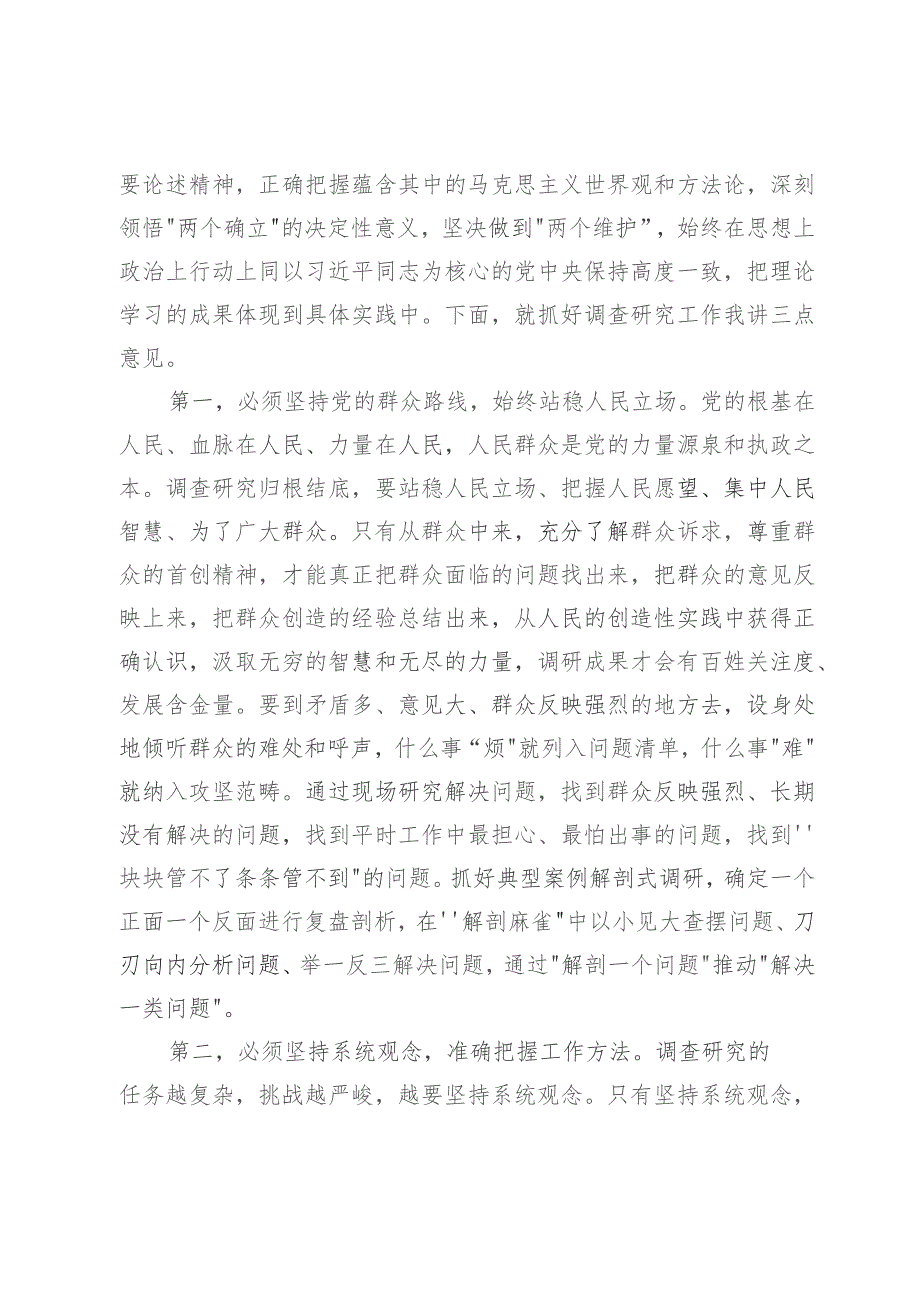 要论述精神，正确把握蕴含其中的马克思主义世界观和方法论，深刻
领悟"两个确立"的决定性意义，坚决做到"两个维护”，始终在思想上
政治上行动上同以习近平同志为核心的党中央保持高度一致，把理论
学习的成果体现到具体实践中。下面，就抓好调查研究工作我讲三点
意见。
第一，必须坚持党的群众路线，始终站稳人民立场。党的根基在
人民、血脉在人民、力量在人民，人民群众是党的力量源泉和执政之
本。调查研究归根结底，要站稳人民立场、把握人民愿望、集中人民
智慧、为了广大群众。只有从群众中来，充分了解群众诉求，尊重群
众的首创精神，才能真正把群众面临的问题找出来，把群众的意见反
映上来，把群众创造的经验总结出来，从人民的创造性实践中获得正
确认识，汲取无穷的智慧和无尽的力量，调研成果才会有百姓关注度、
发展含金量。要到矛盾多、意见大、群众反映强烈的地方去，设身处
地倾听群众的难处和呼声，什么事“烦"就列入问题清单，什么事"难"
就纳入攻坚范畴。通过现场研究解决问题，找到群众反映强烈、长期
没有解决的问题，找到平时工作中最担心、最怕出事的问题，找到''
块块管不了条条管不到"的问题。抓好典型案例解剖式调研，确定一个
正面一个反面进行复盘剖析，在''解剖麻雀"中以小见大查摆问题、刀
刃向内分析问题、举一反三解决问题，通过"解剖一个问题"推动"解决
一类问题"。
第二，必须坚持系统观念，准确把握工作方法。调查研究的
任务越复杂，挑战越严峻，越要坚持系统观念。只有坚持系统观念，